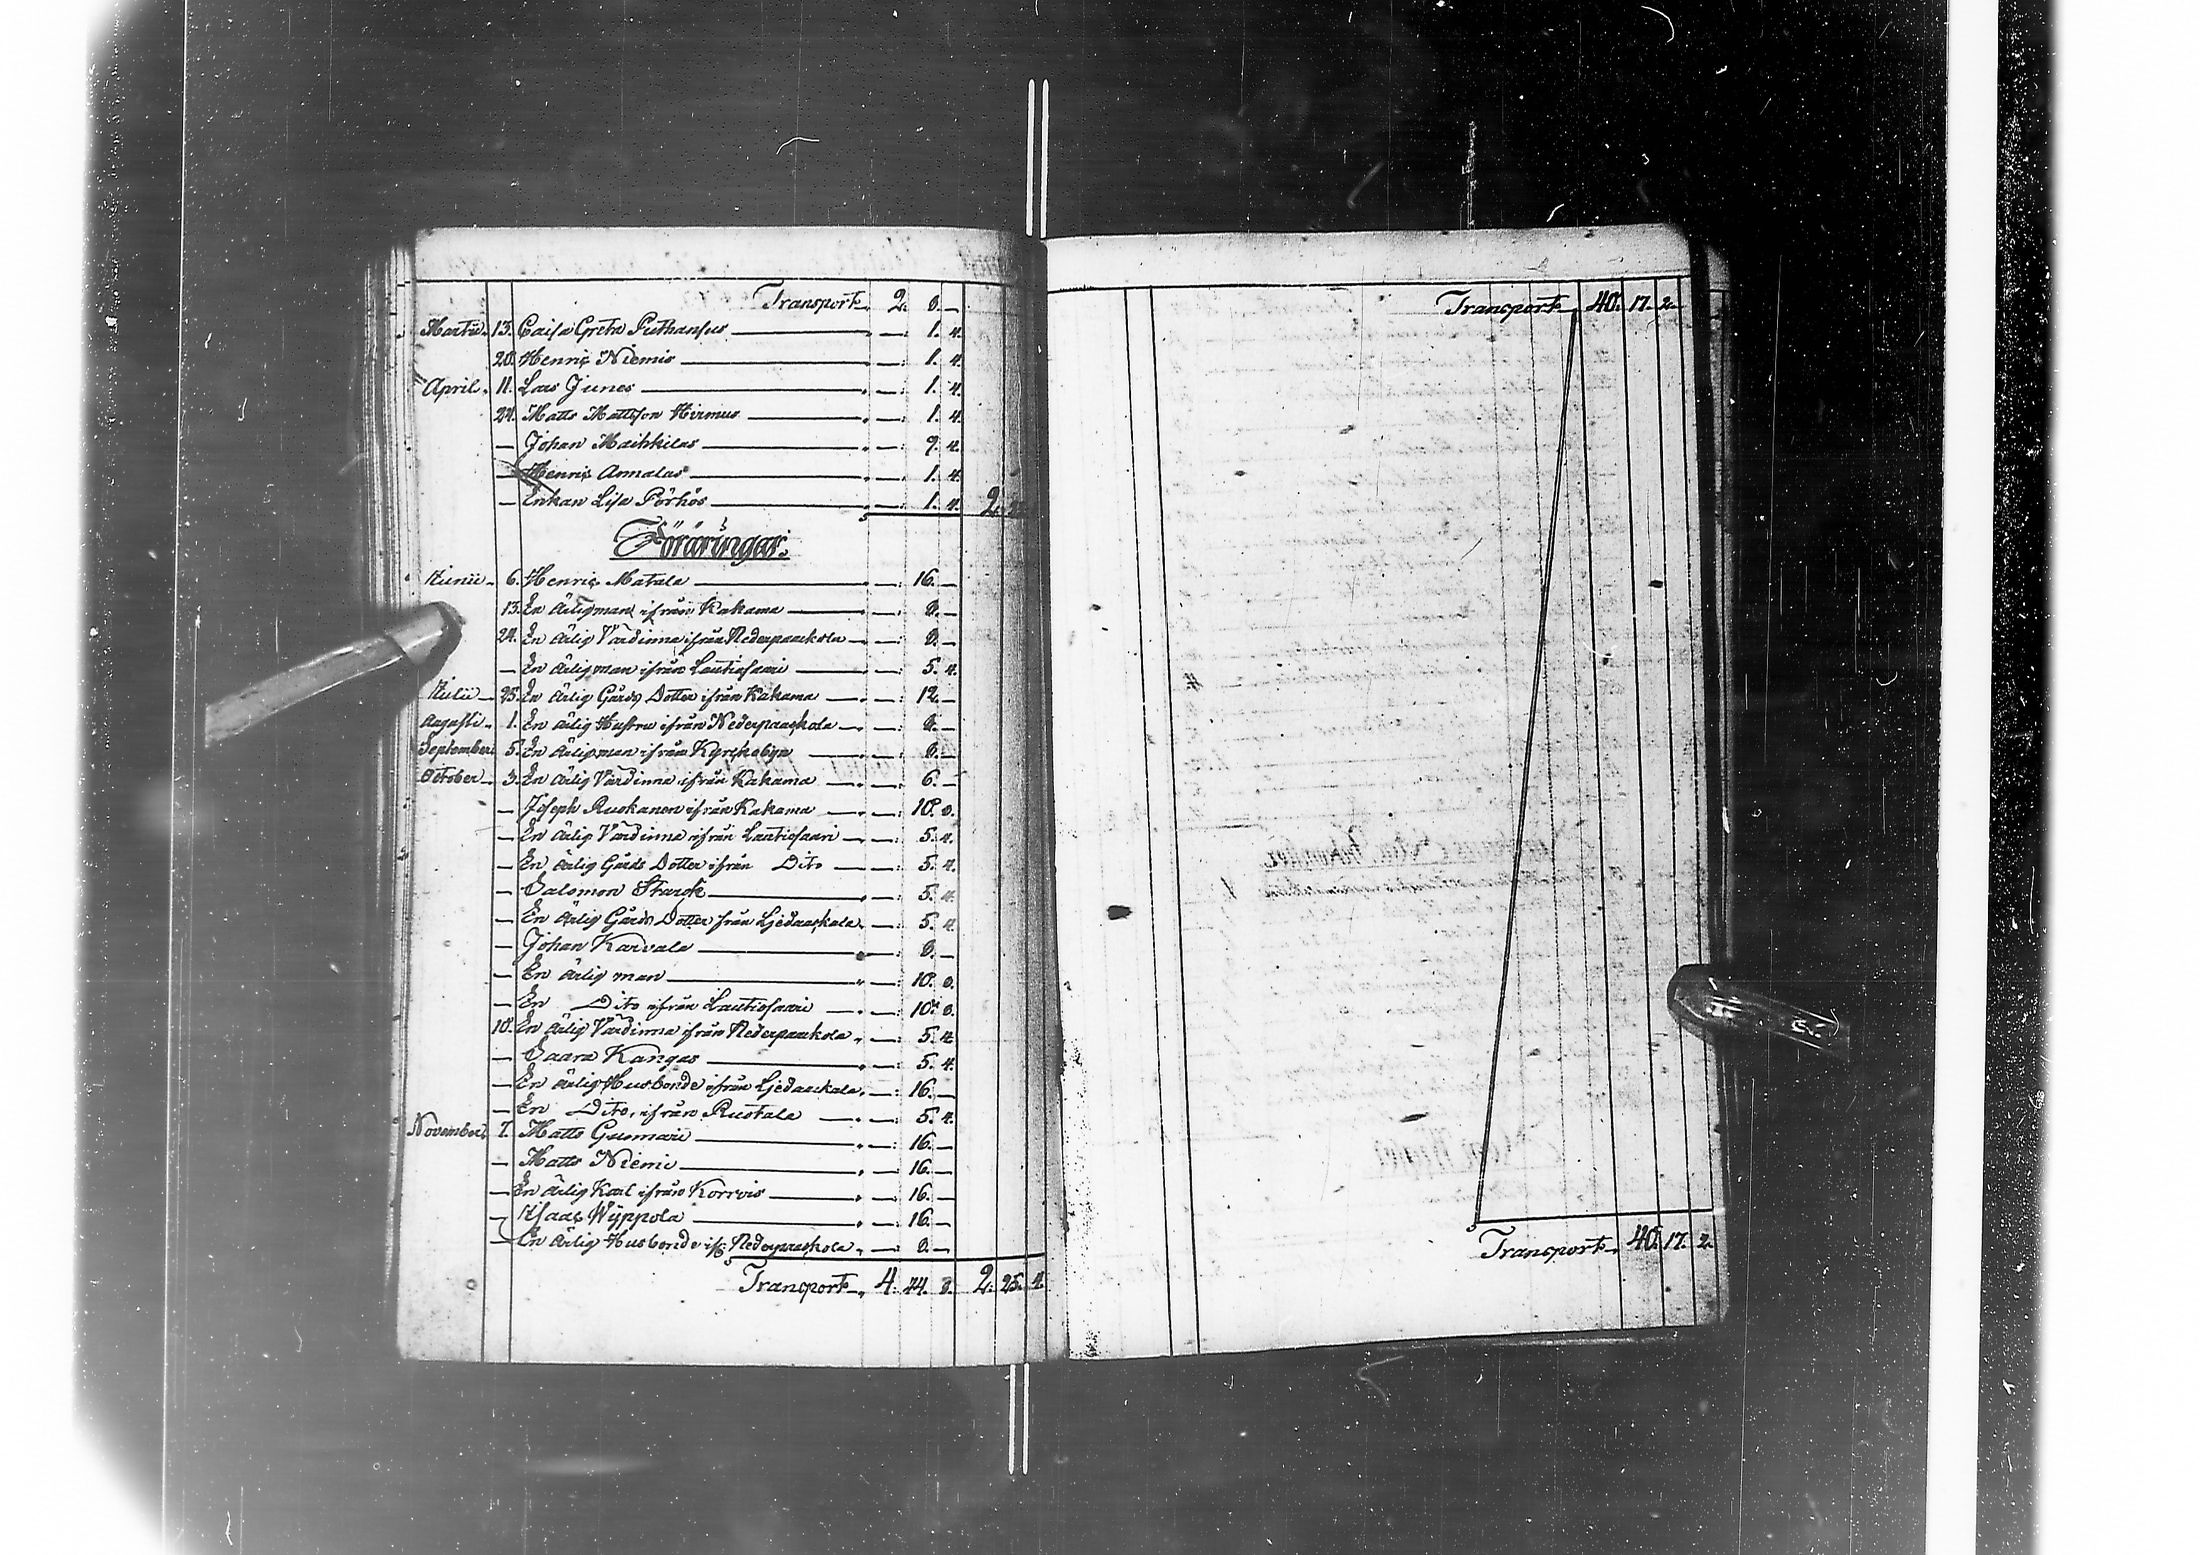 Transport 2. 8. —
Martii. 13. Caisa Greta Puthansus — 1. 4.
20. Henric Niemis — 1. 4.
April. 11. Lars Junes — 1. 4.
24. Matts Mattsson Hirmus — 1. 4.
— Johan Maihkilas — 9. 4.
— Henric Annalas — 1. 4.
— Enkan Lisa Pörhös — 1. 4. 2.
Föräringar.
Junii — 6. Henric Matala — 16. —
13. En ärlig man ifrån Kakama — 8. —
24. En ärlig Värdinna ifrån Nederpaackola — 8. —
— En ärlig man ifrån Lautiosaari — 5. 4.
Julii — 25. En ärlig Gårds Dotter ifrån Kakama — 12. —
Augusti. 1. En ärlig Hustru ifrån Nederpaackola — 8. —
September 5. En ärlig man ifrån Kyrckobyn — 8. —
October — 3. En ärlig Värdinna ifrån Kakama — 6. —
— Joseph Ruokanen ifrån Kakama — 10. 8.
— En ärlig Värdinna ifrån Lautiosaari — 5. 4.
— En ärlig Gårds Dotter ifrån Dito — 5. 4.
— Salomon Starck — 5. 4.
— En ärlig Gårds Dotter från Liedackala — 5. 4.
— Johan Karvala — 8. —
— En ärlig man — 10. 8.
— En Dito ifrån Lautiosaari — 10. 8.
10. En ärlig Värdinna ifrån Nederpaackola — 5. 4.
— Saara Kangas — 5. 4.
— En ärlig Husbonde ifrån Liedackala — 16. —
— En Dito, ifrån Ruotala — 5. 4.
November, 7. Matts Gusmari — 16. —
— Matts Niemi — 16. —
— En ärlig Karl ifrån Korrvis — 16. —
— Isaac Wyppola — 16. —
— En ärlig Husbonde ifr Nederpaackola — 8. —
Transport 4. 44. 8. 2. 25. 4.
Transport 40. 17. 2.
Transport 40. 17. 2.